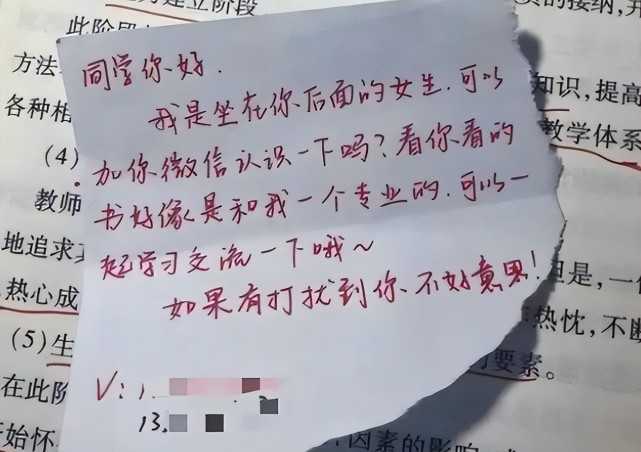 建立阶段
的接纳,并
此阶段
同学你好.
方法
知识,提高
我是坐在你后面的女生.可以
各种相
教学体系
(4)
加你微信认识一下吗?看你看的
教师
书好像是和我一个专业的.可以一
地追求
起学习交流一下哦~
但是,一
热心成
如果有打扰到你、不好意思!
热忱,不断
(5)生
要素。
在此阶
V:1.
13.
始怀
因素的影响